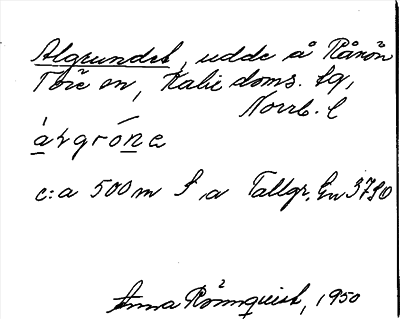 Algrundet, udde å Rånön
Töre sn, Kalix doms. tg,
Norrb. l
árgróne
c:a 500 m S a Tallgr. En 3790
Anna Rönnquist, 1950